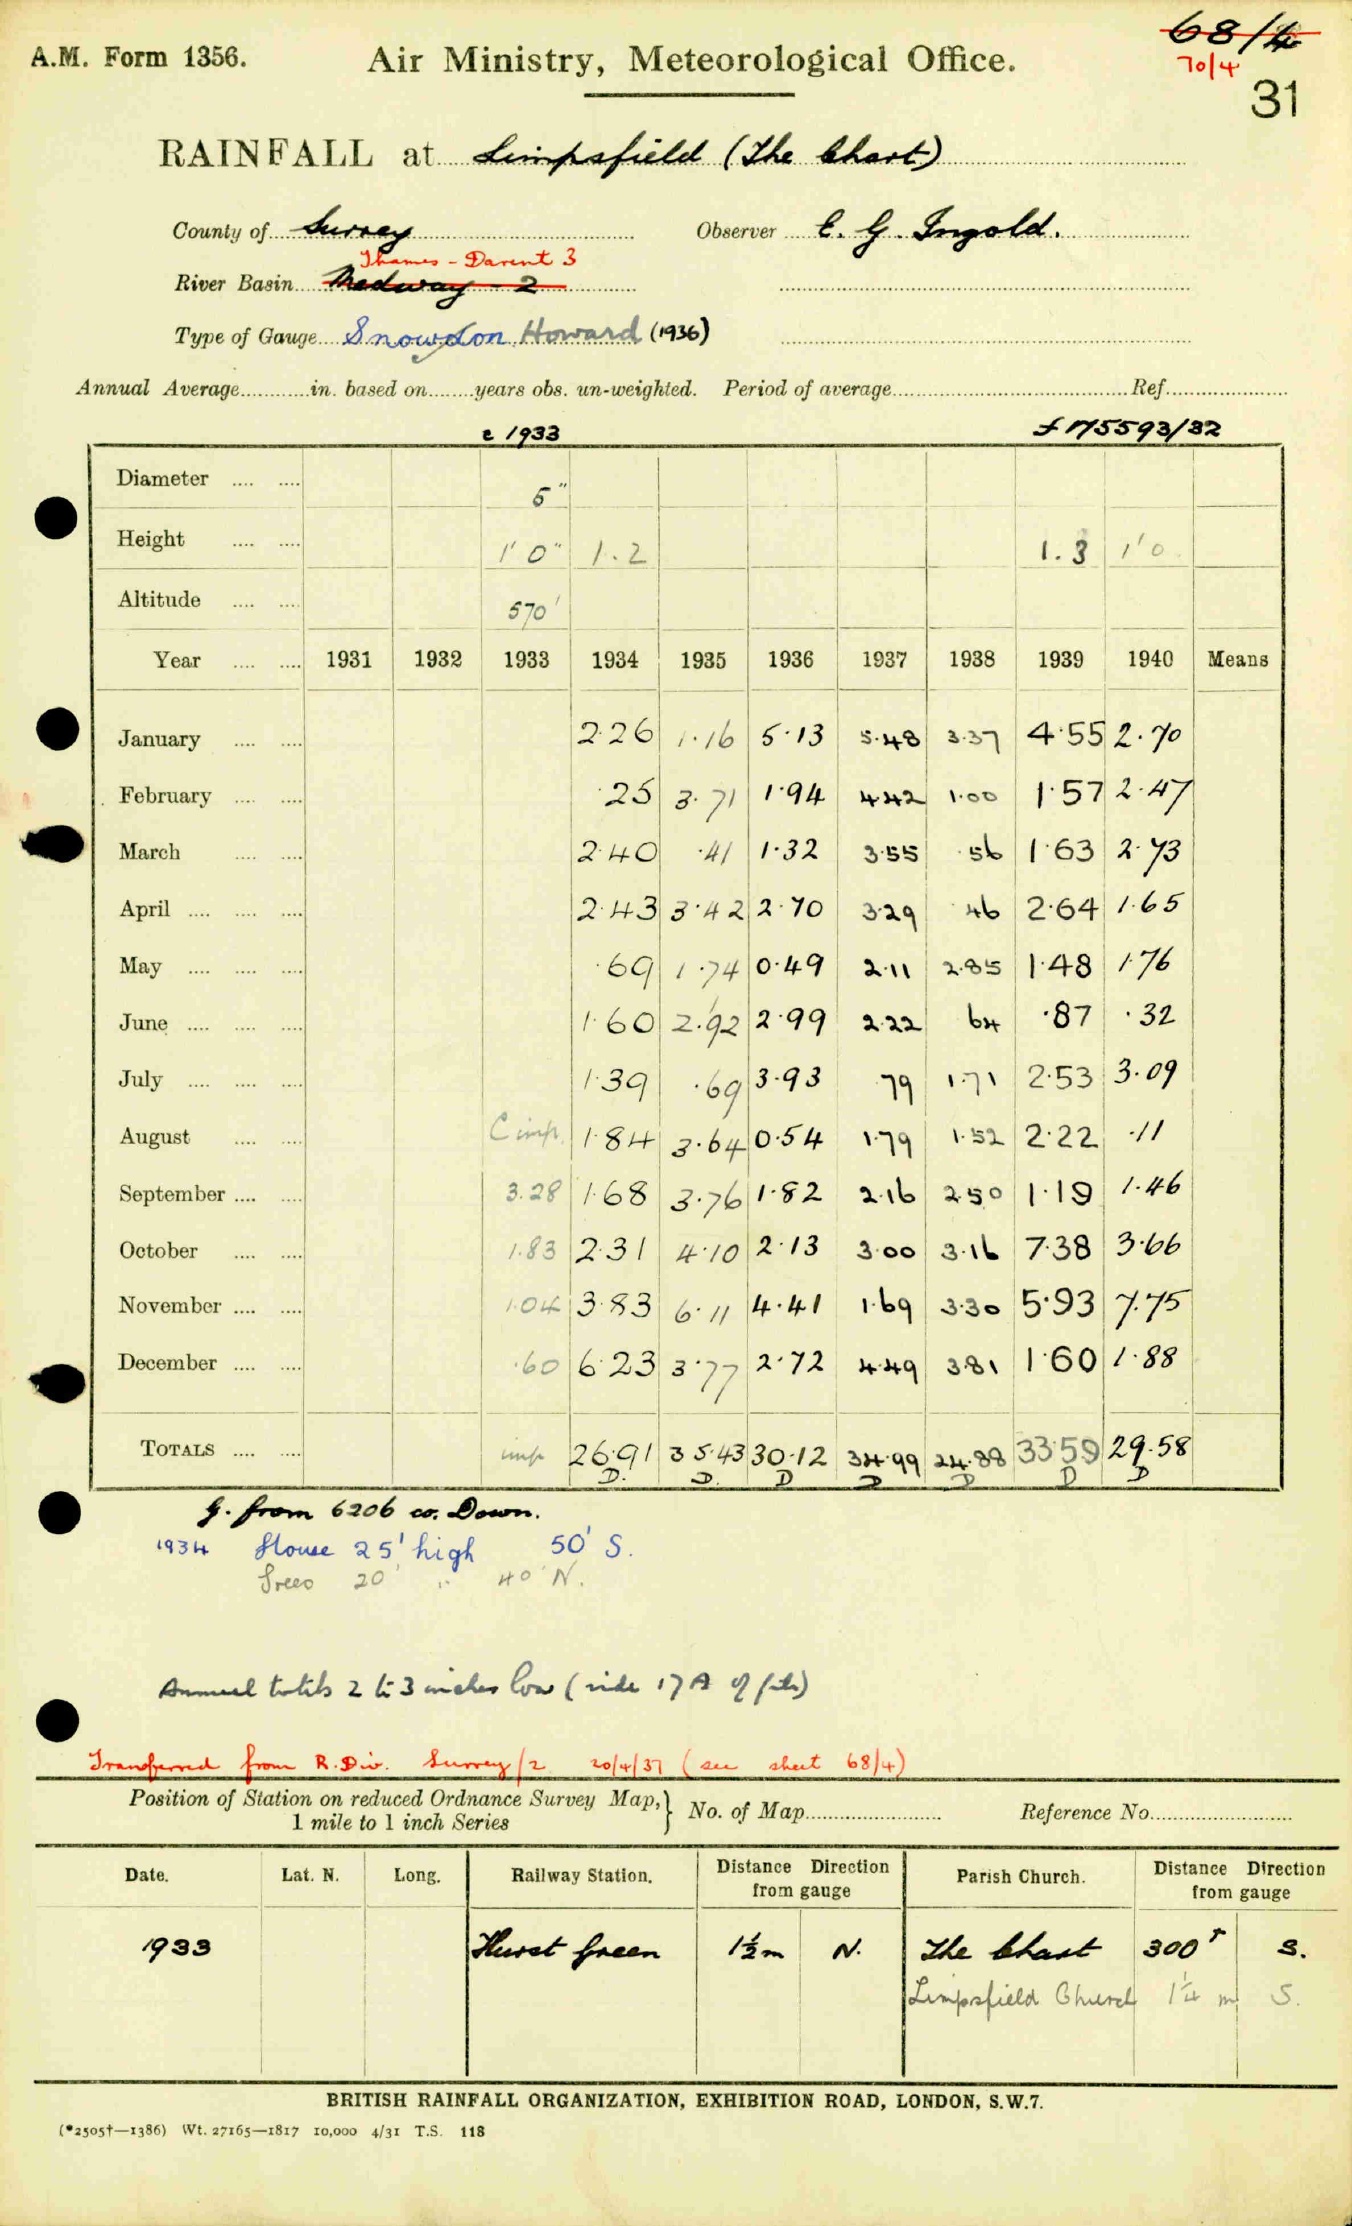 68/4
A.M. Form 1356. Air Ministry, Meteorological Office.
70/4
31
RAINFALL at Limpsfield (The Chart)
County of Surrey Observer E. G. Ingold.
Thames - Darent 3
River Basin Medway - 2
Type of Gauge Snowdon Howard (1936)
Annual Average in. based on years obs. un-weighted. Period of average Ref.
1933 £ 175593/32
Diameter 5"
Height 1'0" 1.2 1.3 1'0
Altitude 570'
Year 1931 1932 1933 1934 1935 1936 1937 1938 1939 1940 Means
January 2.26 1.16 5.13 5.48 3.37 4.55 2.70
February .25 3.71 1.94 4.42 1.00 1.57 2.47
March 2.40 .41 1.32 3.55 .56 1.63 2.73
April 2.43 3.42 2.70 3.29 .46 2.64 1.65
May .69 1.74 0.49 2.11 2.85 1.48 1.76
June 1.60 2.92 2.99 2.22 64 .87 .32
July 1.39 .69 3.93 .79 1.71 2.53 3.09
August imp. 1.84 3.64 0.54 1.79 1.52 2.22 .11
September 3.28 1.68 3.76 1.82 2.16 2.50 1.19 1.46
October 1.83 2.31 4.10 2.13 3.00 3.16 7.38 3.66
November 1.04 3.83 6.11 4.41 1.69 3.30 5.93 7.75
December .60 6.23 3.77 2.72 4.49 3.81 1.60 1.88
TOTALS imp 26.91 35.43 30.12 34.99 24.88 33.59 29.58
D. D. D D D D D
G. from 6206 co. Down.
1934 House 25' high 50' S.
Trees 20' " 40' N.
Annual totals 2 to 3 inches low (vide 17A of file)
Transferred from R. Div. Surrey/2 20/4/37 (see sheet 68/4)
Position of Station on reduced Ordnance Survey Map, 1 mile to 1 inch Series } No. of Map Reference No.
Date. Lat. N. Long. Railway Station. Distance Direction from gauge Parish Church. Distance Direction from gauge
1933 Hurst Green 1½m N. The Chart 300ˣ S.
Limpsfield Church 1¼ m S.
BRITISH RAINFALL ORGANIZATION, EXHIBITION ROAD, LONDON, S.W.7.
(*2505†—1386) Wt. 27165—1817 10,000 4/31 T.S. 118